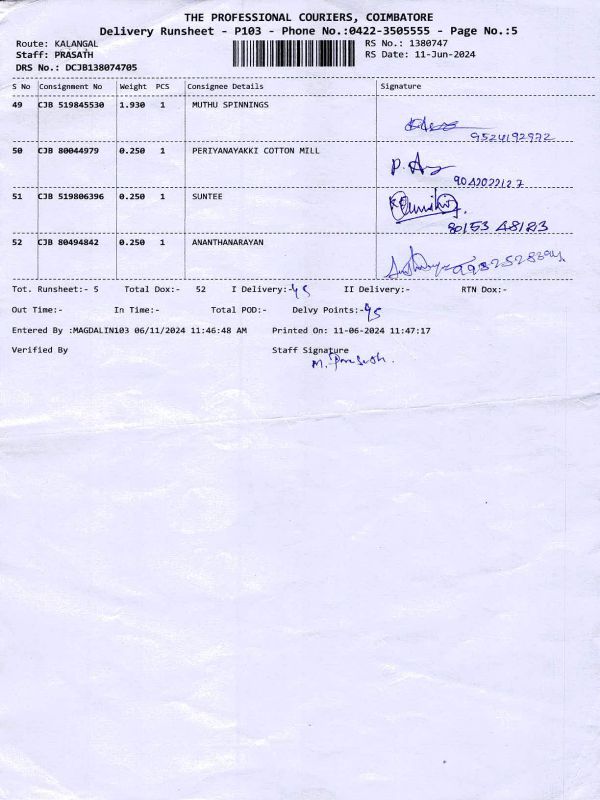 THE PROFESSIONAL COURIERS, COIMBATORE
Delivery Runsheet - P103 - Phone No.:0422-3505555 - Page No.:5
Route: KALANGAL RS No.: 1380747
Staff: PRASATH RS Date: 11-Jun-2024
DRS No.: DCJB138074705
S No Consignment No Weight PCS Consignee Details Signature
49 CJB 519845530 1.930 1 MUTHU SPINNINGS
9524192972
50 CJB 80044979 0.250 1 PERIYANAYAKKI COTTON MILL
9042022127
51 CJB 519806396 0.250 1 SUNTEE
80153 48123
52 CJB 80494842 0.250 1 ANANTHANARAYAN
Tot. Runsheet:- 5 Total Dox:- 52 I Delivery:-45 II Delivery:- RTN Dox:-
Out Time:- In Time:- Total POD:- Delvy Points:-45
Entered By :MAGDALIN103 06/11/2024 11:46:48 AM Printed On: 11-06-2024 11:47:17
Verified By Staff Signature
M. Prasath.